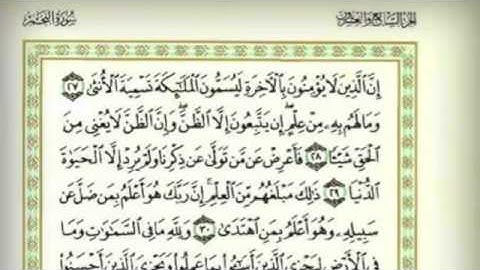 سورة النجم
الجزء السابع والعشرون
إِنَّ الَّذِينَ لَا يُؤْمِنُونَ بِالْآخِرَةِ لَيُسَمُّونَ الْمَلَائِكَةَ تَسْمِيَةَ الْأُنْثَىٰ ٢٧
وَمَا لَهُمْ بِهِ مِنْ عِلْمٍ إِنْ يَتَّبِعُونَ إِلَّا الظَّنَّ وَإِنَّ الظَّنَّ لَا يُغْنِي مِنَ
الْحَقِّ شَيْئًا ٢٨ فَأَعْرِضْ عَنْ مَنْ تَوَلَّىٰ عَنْ ذِكْرِنَا وَلَمْ يُرِدْ إِلَّا الْحَيَاةَ
الدُّنْيَا ٢٩ ذَٰلِكَ مَبْلَغُهُمْ مِنَ الْعِلْمِ إِنَّ رَبَّكَ هُوَ أَعْلَمُ بِمَنْ ضَلَّ عَنْ
سَبِيلِهِ وَهُوَ أَعْلَمُ بِمَنِ اهْتَدَىٰ ٣٠ وَلِلَّهِ مَا فِي السَّمَاوَاتِ وَمَا
فِي الْأَرْضِ لِيَجْزِيَ الَّذِينَ أَسَاءُوا بِمَا عَمِلُوا وَيَجْزِيَ الَّذِينَ أَحْسَنُوا